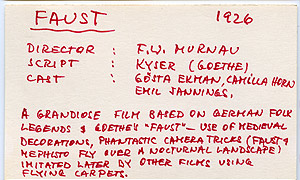 FAUST 1926
DIRECTOR : F.W. MURNAU
SCRIPT : KYSER (GOETHE)
CAST : GÖSTA EKMAN, CAMILLA HORN
EMIL JANNINGS.
A GRANDIOSE FILM BASED ON GERMAN FOLK
LEGENDS & GOETHE'S "FAUST" — USE OF MEDIEVAL
DECORATIONS, PHANTASTIC CAMERA TRICKS (FAUST &
MEPHISTO FLY OVER A NOCTURNAL LANDSCAPE)
IMITATED LATER BY OTHER FILMS USING
FLYING CARPETS.